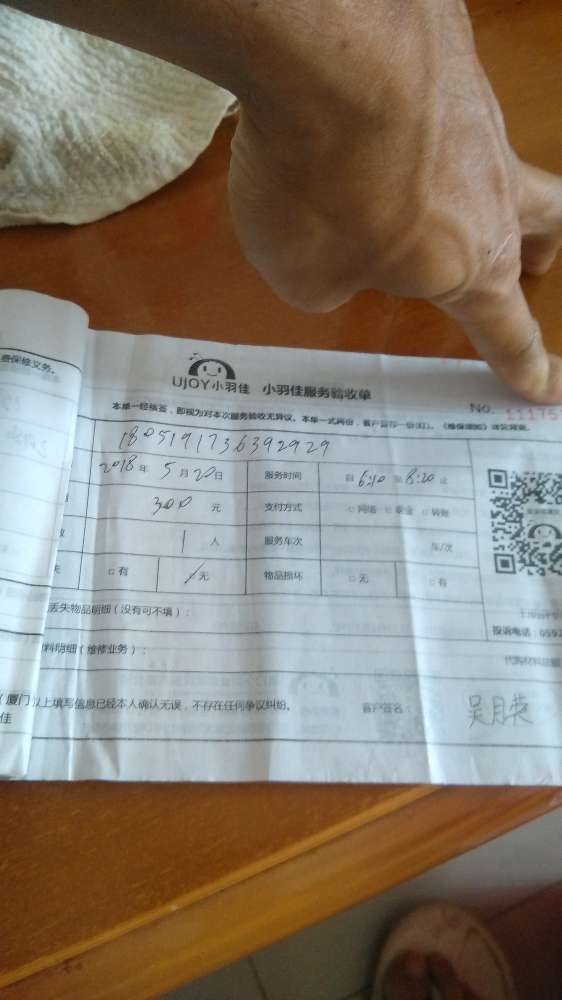 费保修义务。
UJOY小羽佳 小羽佳服务验收单
No. 11175
本单一经核签，即视为对本次服务验收无异议。本单一式两份，客户留存一份
180519173639 2929
2018年5月20日 服务时间 自6:10至8:20止
300元 支付方式 □网络 □现金 □转账
1人 服务车次 车/次
□有 □无 物品损坏 □无 □有
丢失物品明细（没有可不填）：
投诉电话：0592
料明细（维修业务）：
（厦门
以上填写信息已经本人确认无误，不存在任何争议纠纷。 客户签名： 吴月英
佳